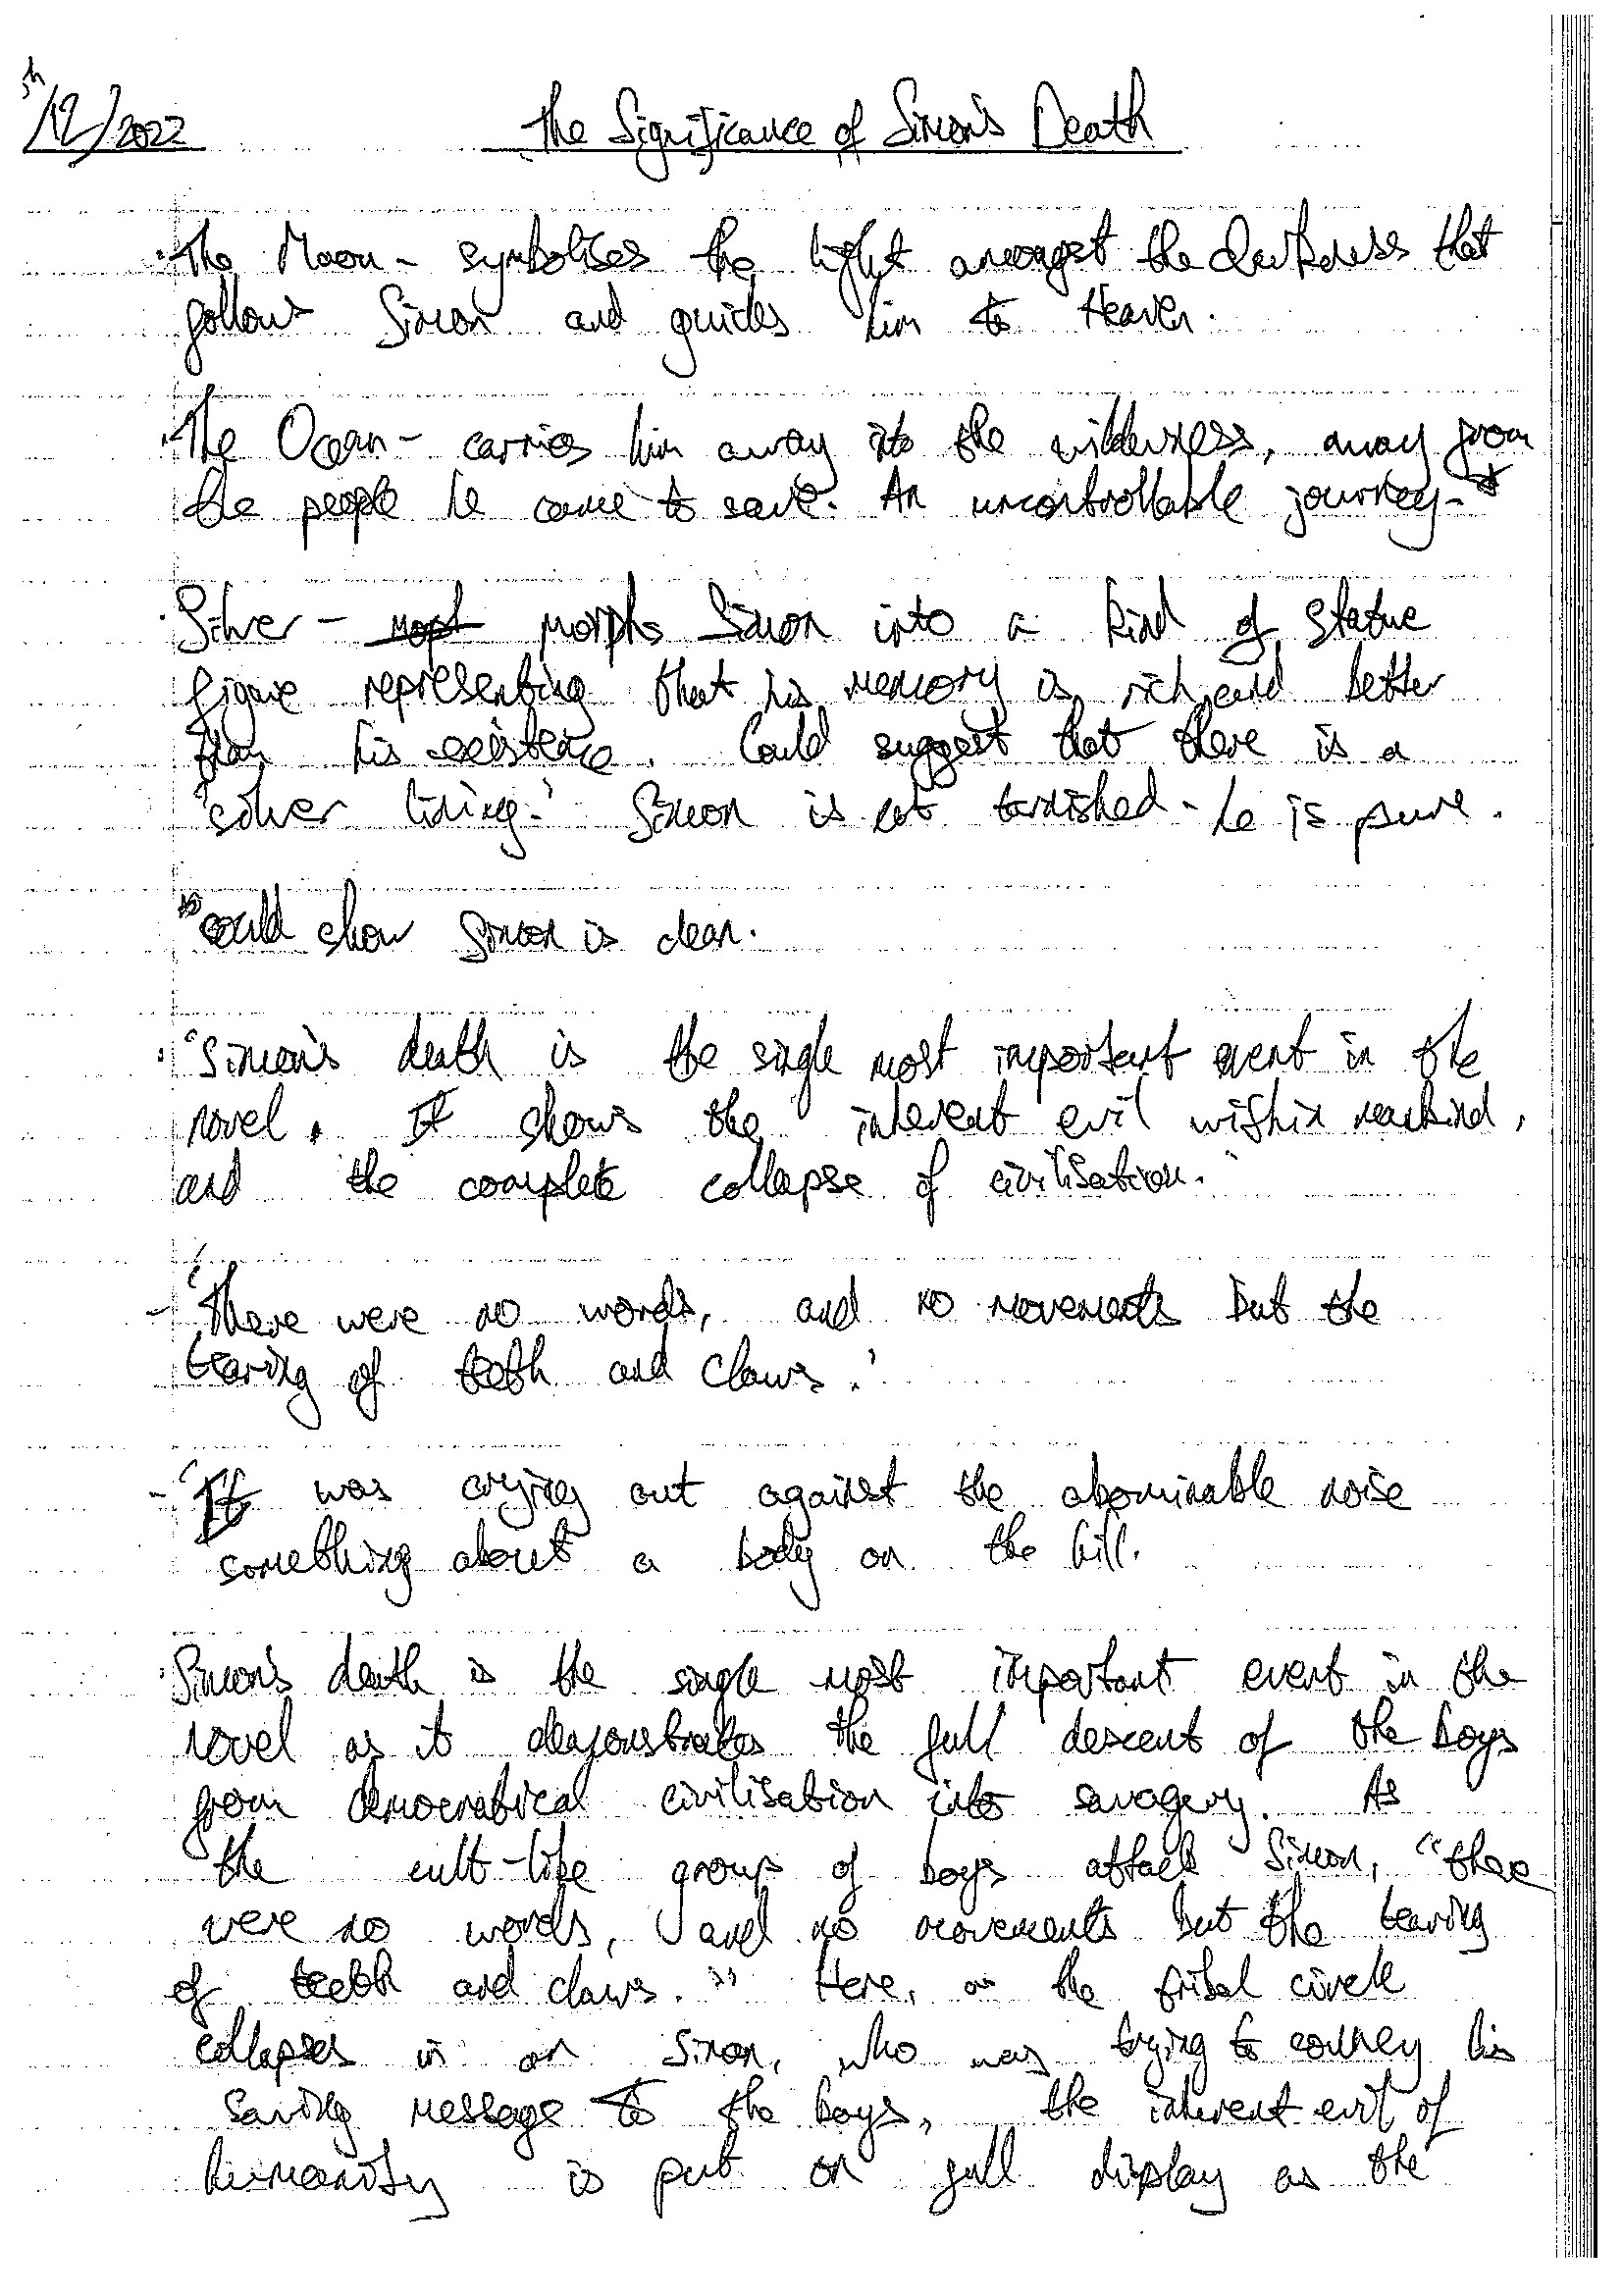 /12/2022
The Significance of Simon's Death
· The Moon - symbolises the light amongst the darkness that
follows Simon and guides him to Heaven.
· The Ocean - carries him away into the wilderness, away from
the people he came to save. An uncontrollable journey. *
· Silver - morphs Simon into a kind of statue
figure representing that his memory is rich and better
than his existence. Could suggest that there is a
'silver lining.' Simon is not tarnished - he is pure.
* could show Simon is clean.
· "Simon's death is the single most important event in the
novel. It shows the inherent evil within mankind,
and the complete collapse of civilisation."
- 'There were no words, and no movements but the
tearing of teeth and claws.'
- 'It was crying out against the abominable noise
something about a body on the hill.
· Simon's death is the single most important event in the
novel as it demonstrates the full descent of the boys
from democratical civilisation into savagery. As
the cult-like group of boys attack Simon, "there
were no words, and no movements but the tearing
of teeth and claws." Here, as the tribal circle
collapses in on Simon, who was trying to convey his
saving message to the boys, the inherent evil of
humanity is put on full display as the